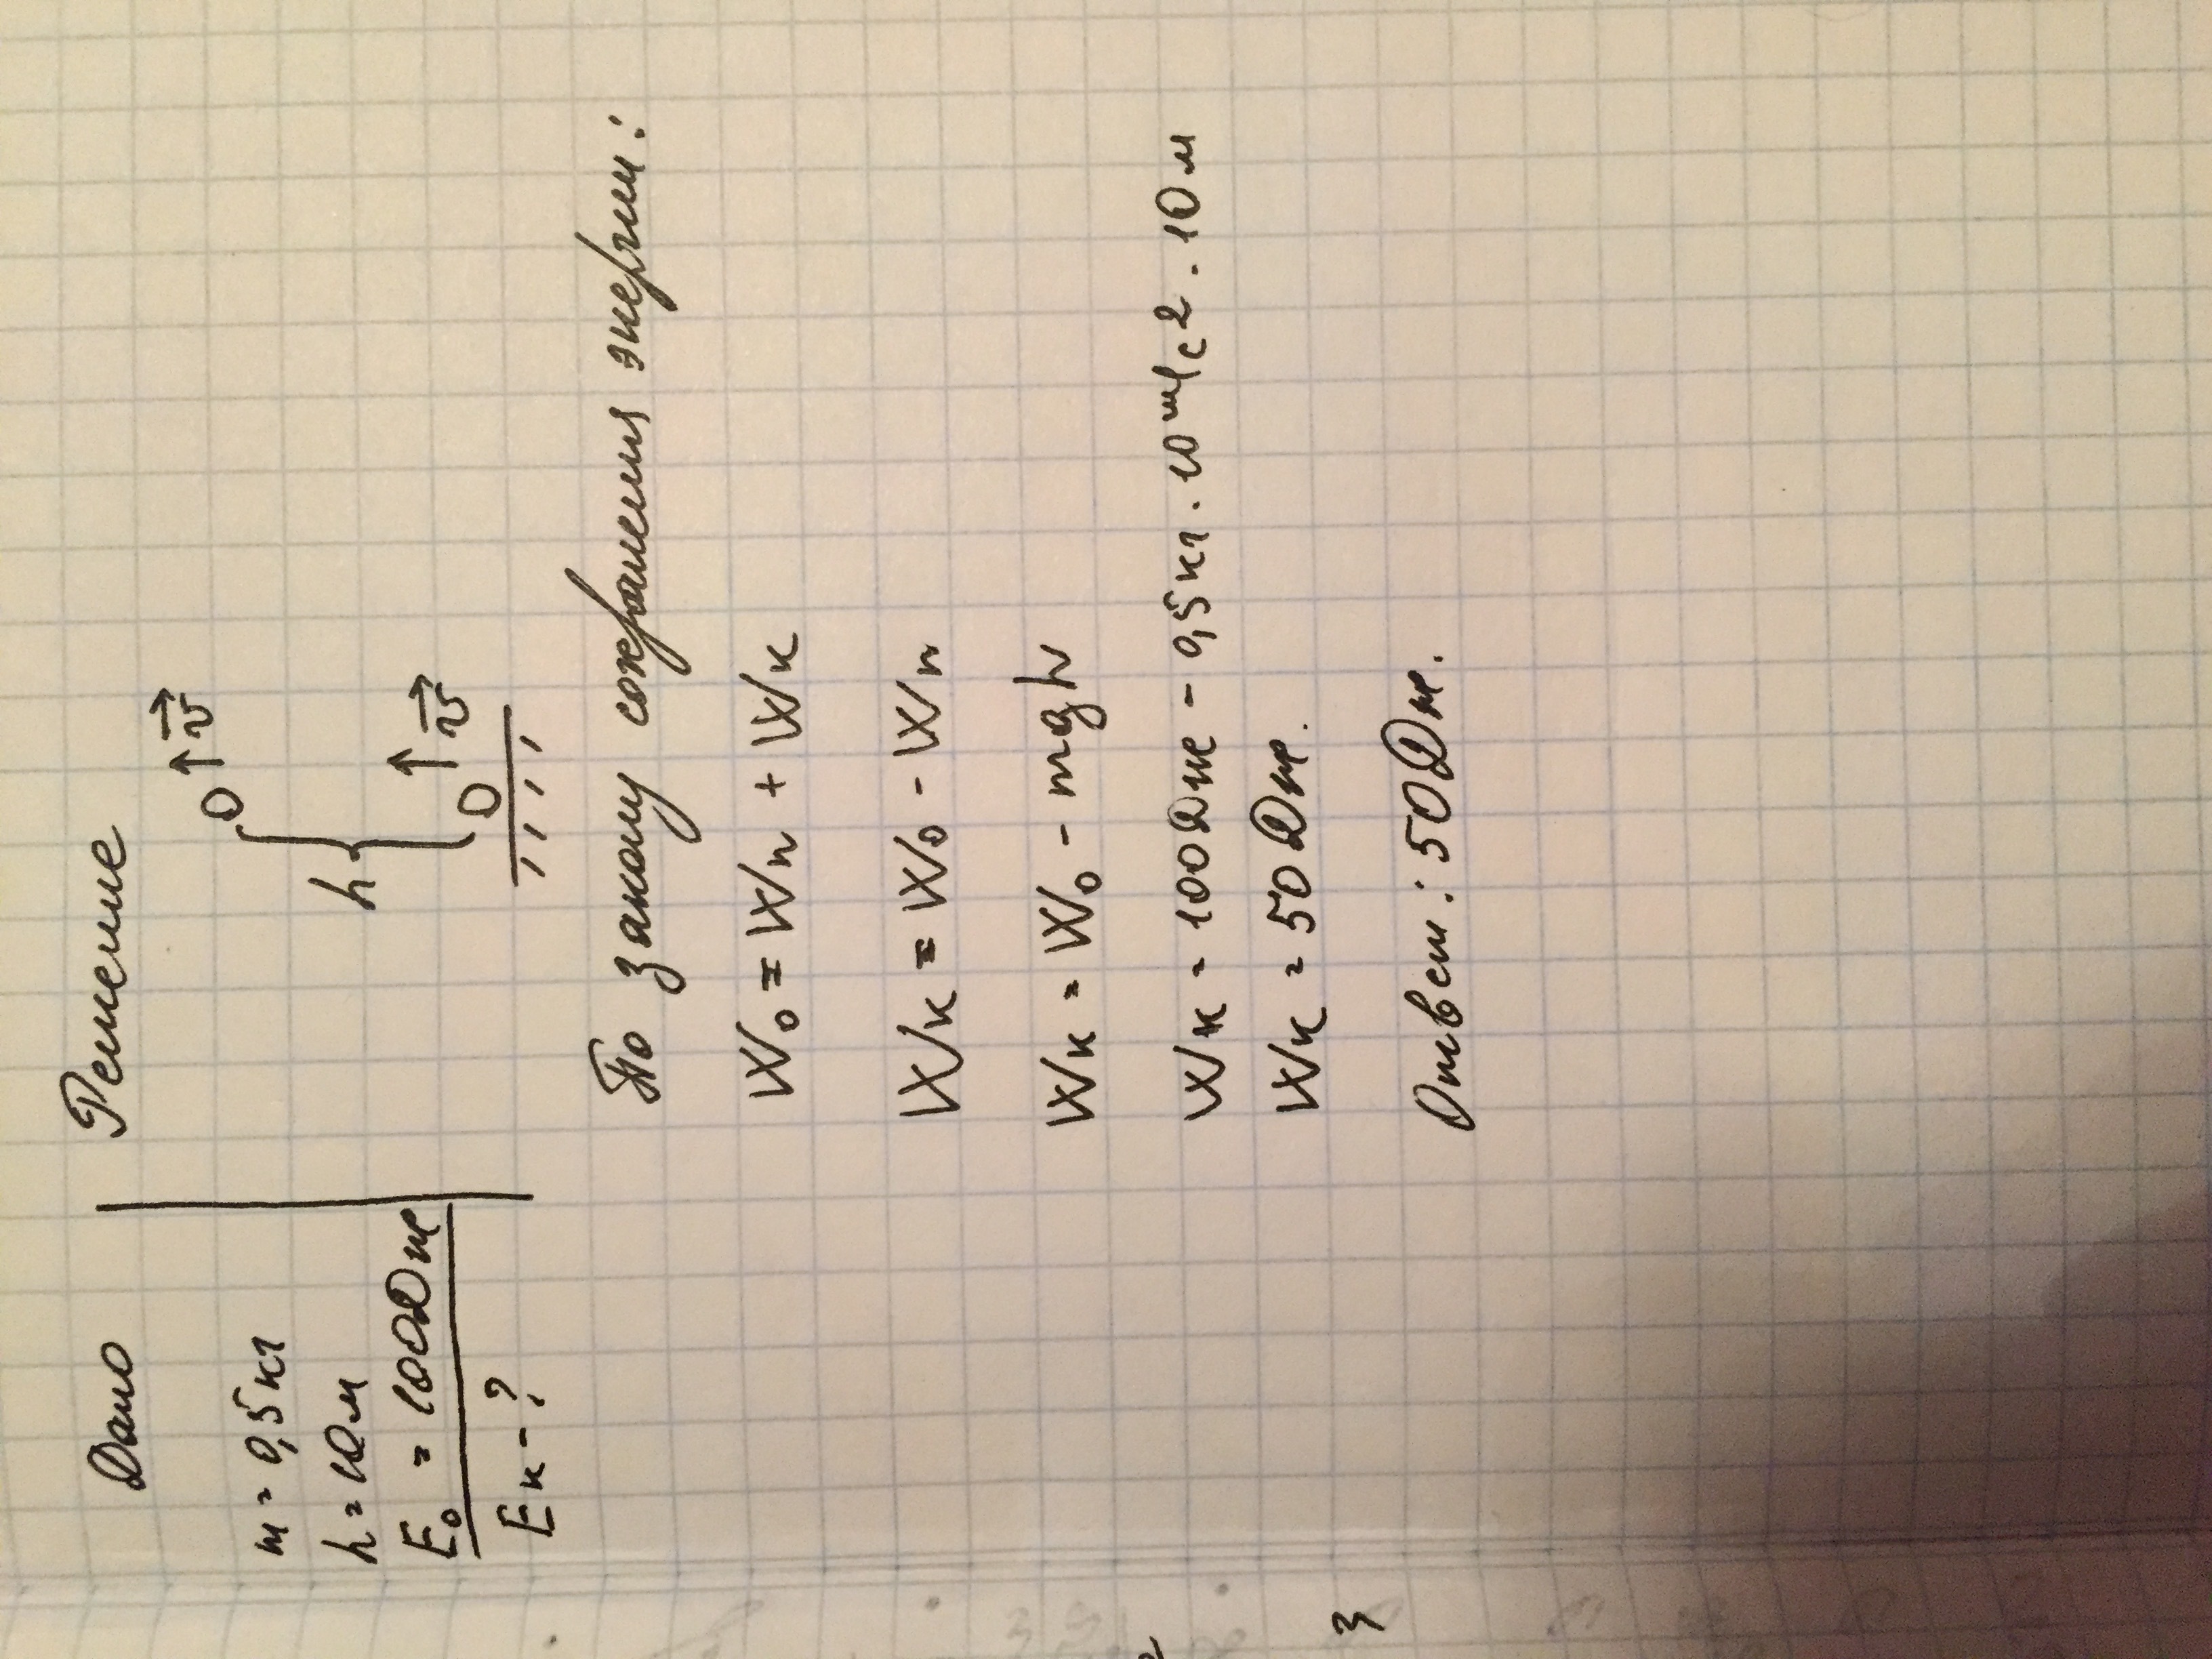 Дано
m = 0,5 кг
h = 10 м
E₀ = 100 Дж
Eк - ?
Решение
v
h
v
По закону сохранения энергии:
W₀ = Wп + Wк
Wк = W₀ - Wп
Wк = W₀ - mgh
Wк = 100 Дж - 0,5 кг · 10 м/с2 · 10 м
Wк = 50 Дж.
Ответ: 50 Дж.